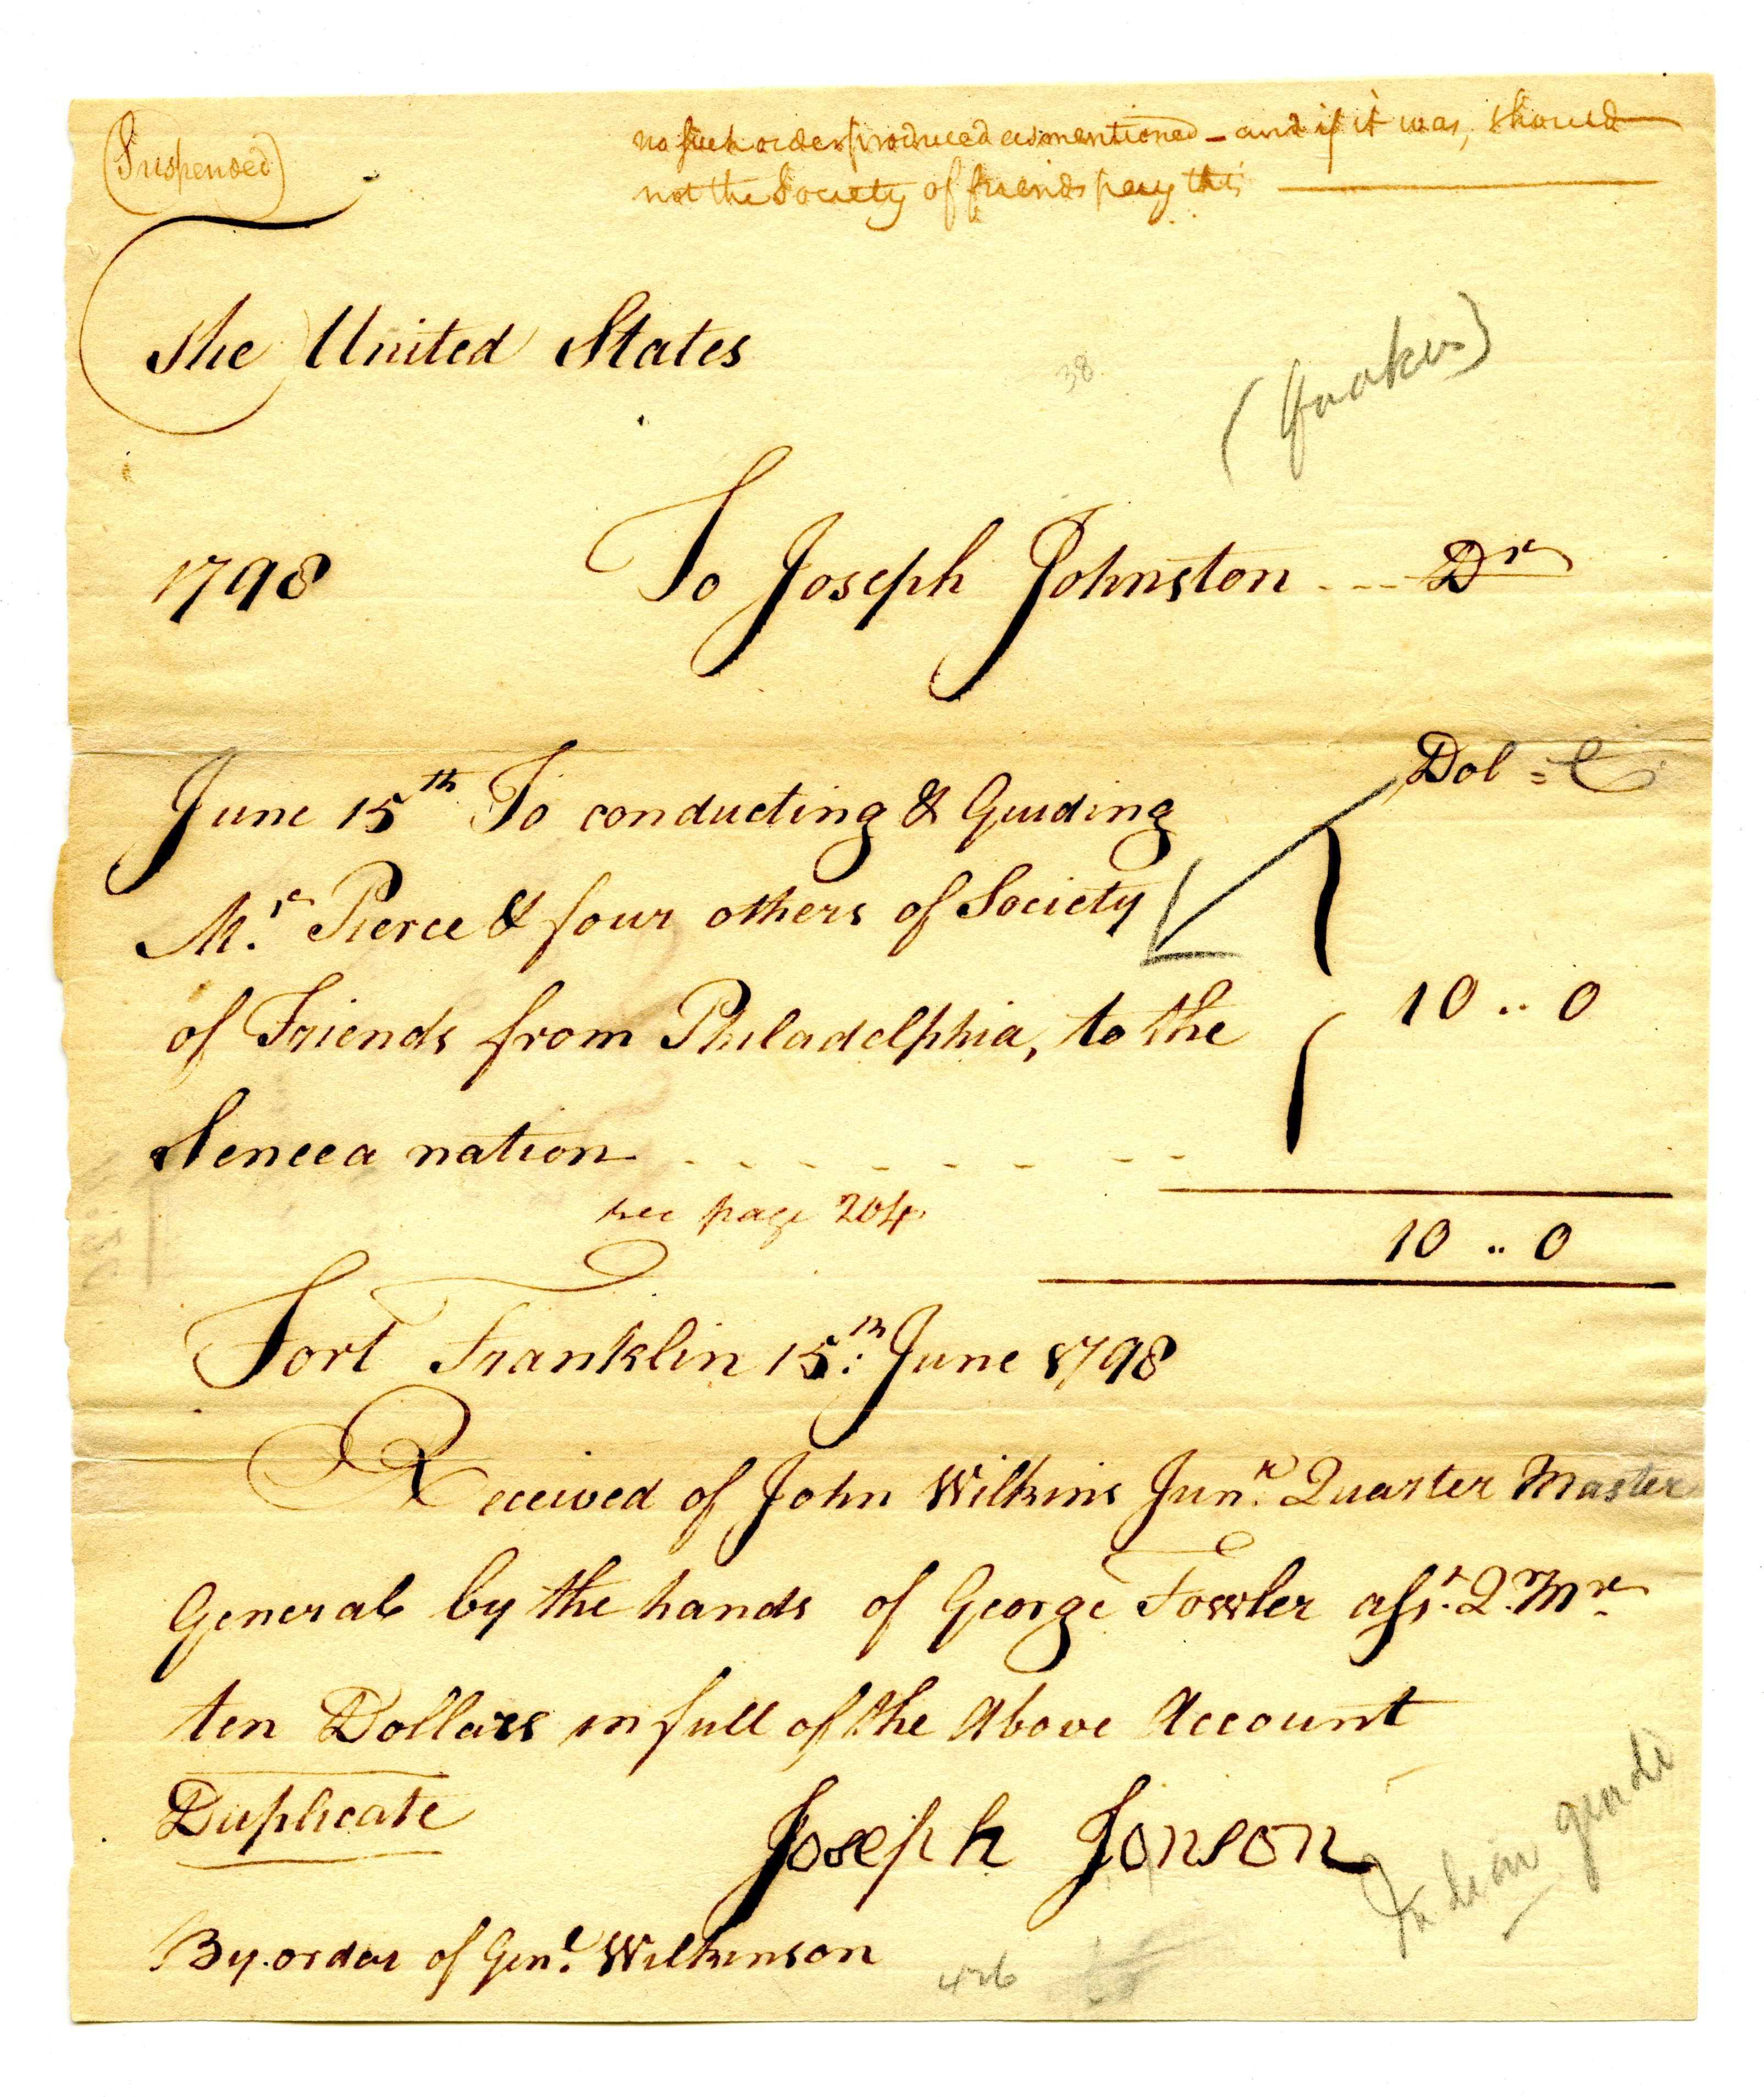 (Suspended)
no such order produced as mentioned - and if it was, should
not the Society of friends pay this
The United States
38
(Quakers)
1798 To Joseph Johnston --- Dr
Dol = C
June 15th To conducting & Guiding
Mr. Pierce & four others of Society
of Friends from Philadelphia, to the
10 .. 0
Seneca nation
see page 204
10 .. 0
Fort Franklin 15th June 1798
Received of John Wilkins Junr. Quarter Master
General by the hands of George Fowler asst. Q. Mr.
ten Dollars in full of the Above Account
Duplicate
Joseph Jonson
Indian guide
By order of Genl. Wilkinson
426